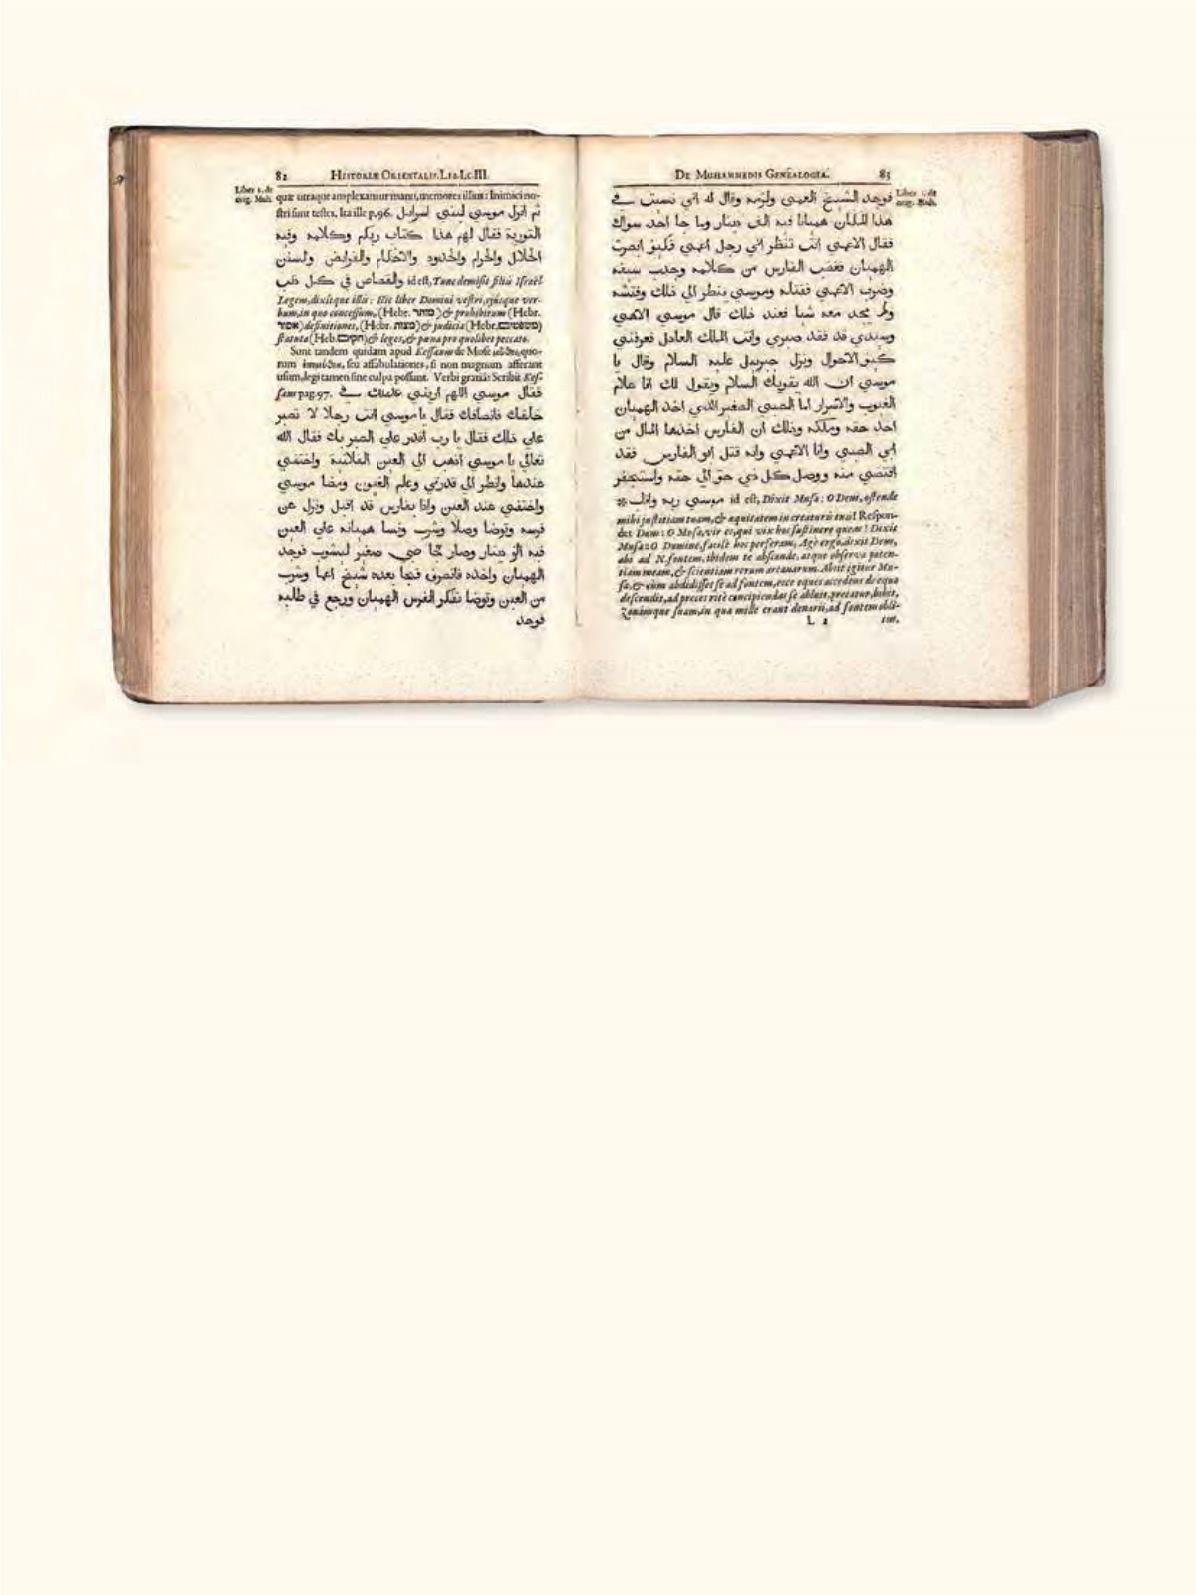 82 HISTORIÆ ORIENTALIS. LIB. I. C. III.
Liber 1. de
orig. Muh.
quæ utraque amplexamur manu, memores illius: Inimici no-
stri sunt testes. Ita ille p. 96. ثم انزل موسي لبني اسرايل
التورية فقال لهم هذا كتاب ربكم وكلامه وفيه
الحلال والحرام والحدود والاحكام والفرايض والسنن
والقصاص في كل id est, Tunc demisit filiis Israël
Legem, dixitque illis: Hic liber Domini vestri, ejusque ver-
bum, in quo concessum, (Hebr. מותר) & prohibitum (Hebr.
אסור) definitiones, (Hebr. מצות) & judicia (Hebr. משפטים)
statuta (Heb. חקים) & leges, & pœna pro quolibet peccato.
Sunt tandem quidam apud Kessæum de Mose quo-
rum seu affabulationes, si non magnum afferant
usum, legi tamen sine culpa possunt. Verbi gratia: Scribit Kes-
sæus pag. 97. فقال موسي اللهم اريني عدلك في
خلقك وانصافك فقال يا موسي انت رجلا لا تصبر
علي ذلك فقال يا رب اقدر علي الصبر بك فقال الله
تعالي يا موسي اذهب الي العين الفلانية واختفي
عندها وانظر الي قدرتي وعلم الغيوب ومضا موسي
واختفي عند العين واذا بفارس قد اقبل ونزل عن
فرسه وتوضا وصلا وشرب ونسا هميانه علي العين
فيه الف دينار وصار صبي صغير ليشرب فوجد
الهميان واخذه وانصرف بعده شيخ اعما وشرب
من العين وتوضا الهميان ورجع في طلبه
فوجد
DE MUHAMMEDIS GENEALOGIA. 83
Liber 1. de
orig. Muh.
فوجد الشيخ ولزمه وقال له اني نسيت في
هذا المكان هميانا فيه الف دينار وما جا احد سواك
فقال الاعمي انت تنظر اني رجل اعمي فكيف ابصرت
الهميان فغضب الفارس من كلامه وجذب سيفه
وضرب الاعمي فقتله وموسي ينظر الي ذلك وفتشه
ولم يجد معه شيا فعند ذلك قال موسي الاهي
وسيدي قد فقد صبري وانت الملك العادل فعرفني
كيف الاحوال ونزل جبريل عليه السلام وقال يا
موسي ان الله يقريك السلام ويقول لك انا علام
الغيوب والاسرار اما الصبي الصغير الذي اخذ الهميان
اخذ حقه وملكه وذلك ان الفارس اخذ المال من
ابي الصبي واما الاعمي وانه قتل ابو الفارس فقد
اقتضي منه ووصل كل ذي حق الي حقه واستغفر
موسي ربه واناب * id est, Dixit Musa: O Deus, ostende
mihi justitiam tuam, & æquitatem in creaturis tuis! Respon-
det Deus: O Musa, vir es, qui vix hoc sustinere queas! Dixit
Musa: O Domine, facile hoc perferam. Age ergo, dixit Deus,
abi ad N. fontem, ibidem te absconde, atque observa poten-
tiam meam, & scientiam rerum arcanarum. Abiit igitur Mu-
sa, & cùm abdidisset se ad fontem, ecce eques accedens de equo
descendit, ad preces ritè concipiendas se abluit, precatur, bibit,
Zonamque suam, in qua mille erant denarii, ad fontem obli-
L 2 tus,